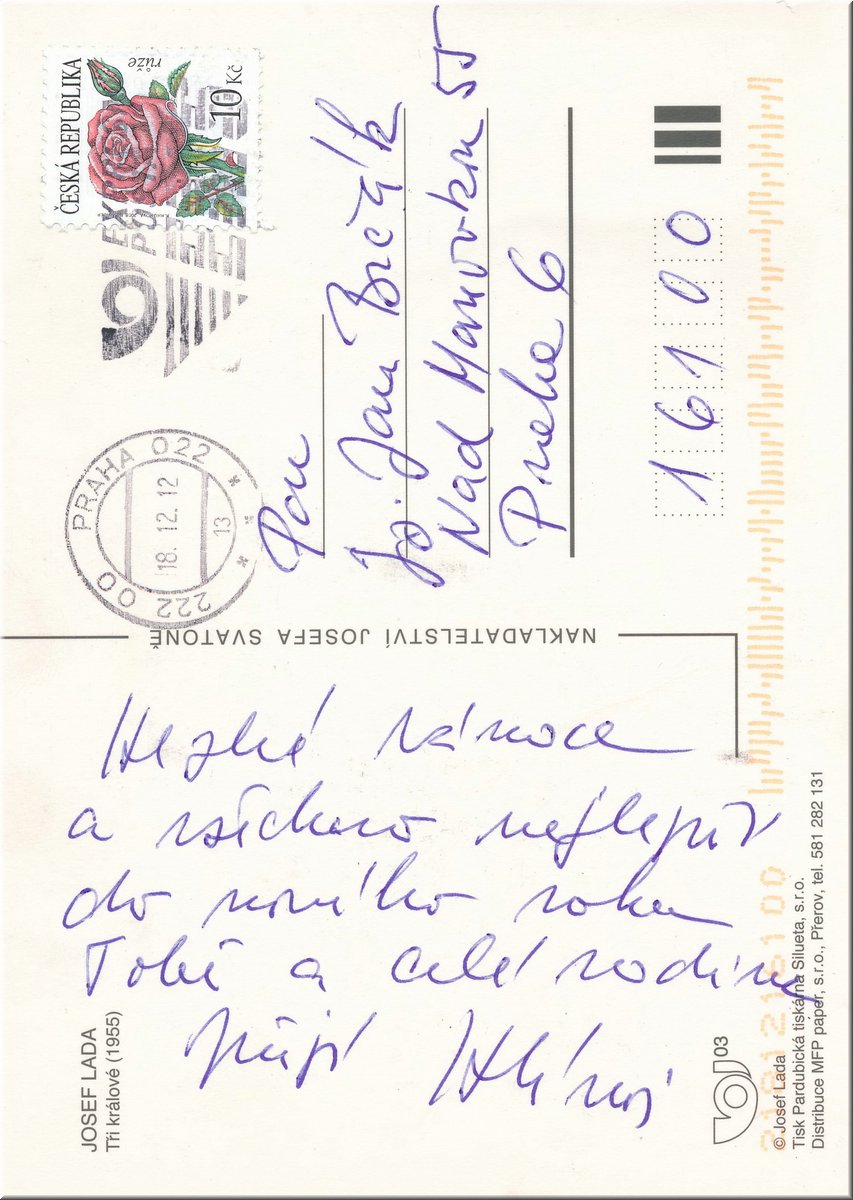 Hezké vánoce
a všechno nejlepší
do nového roku
Tobě a celé rodině
přejí
JOSEF LADA
Tři králové (1955)
03
© Josef Lada
Tisk Pardubická tiskárna Silueta, s.r.o.
Distribuce MFP paper, s.r.o., Přerov, tel. 581 282 131
NAKLADATELSTVÍ JOSEFA SVATONĚ
ČESKÁ REPUBLIKA
růže
10 Kč
PRAHA 022
18.12.12
13
222 00
Pan
Jan
Nad Manovkou 55
Praha 6
161 00